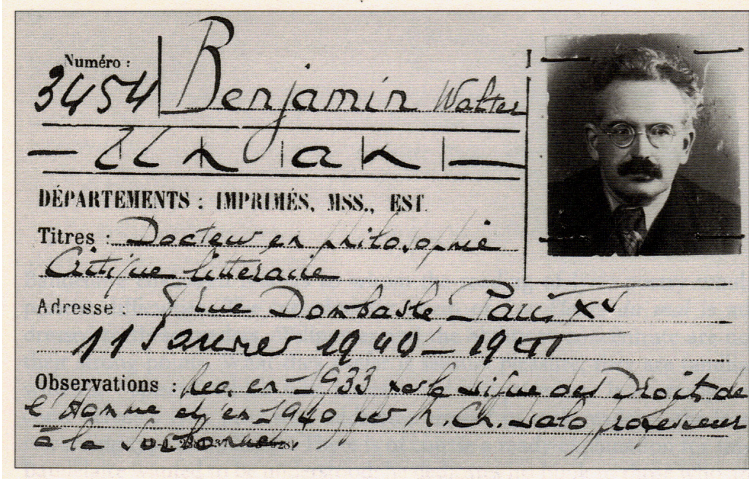 Numéro :
3454 Benjamin Walter
DÉPARTEMENTS : IMPRIMÉS, MSS., EST.
Titres : Docteur en philosophie
Critique littéraire
Adresse : rue Dombasle Paris XV
11 Janvier 1940 - 1941
Observations : Rec. en 1933 par la Ligue des Droits de
l'Homme et en 1940 par M. Ch. Lalo professeur
à la Sorbonne